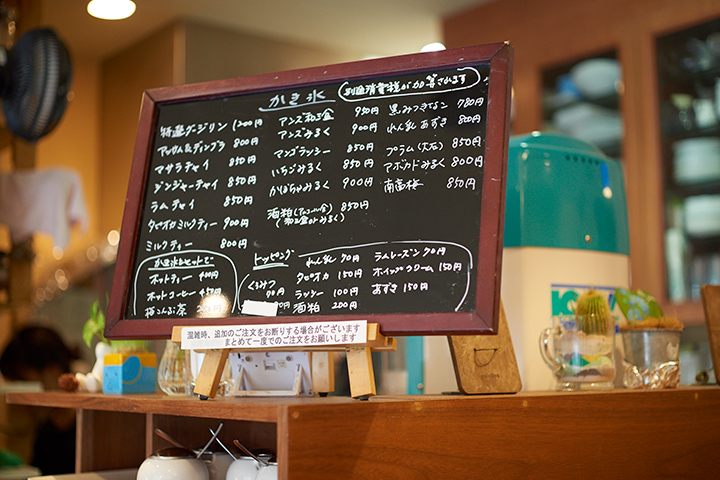 かき氷
別途消費税が加算されます
特選ダージリン 1200円
アッサム&ディンブラ 800円
マサラチャイ 850円
ジンジャーチャイ 850円
ラムチャイ 850円
タピオカミルクティー 900円
ミルクティー 800円
アンズ和三盆 950円
アンズみるく 900円
アンゴランシー 850円
いちごみるく 850円
かぼちゃみるく 900円
酒粕(アルコール含) 850円
(和三盆 or みるく)
黒みつきなこ 780円
れん乳あずき 800円
プラム(大石) 850円
アボカドみるく 800円
南高梅 850円
かき氷とセットで
ホットティー 400円
ホットコーヒー 450円
梅こんぶ茶
トッピング
くるみつ 90円
れん乳 90円
タピオカ 150円
ラッシー 100円
酒粕 200円
ラムレーズン 90円
ホイップクリーム 150円
あずき 150円
混雑時、追加のご注文をお断りする場合がございます
まとめて一度でのご注文をお願いします